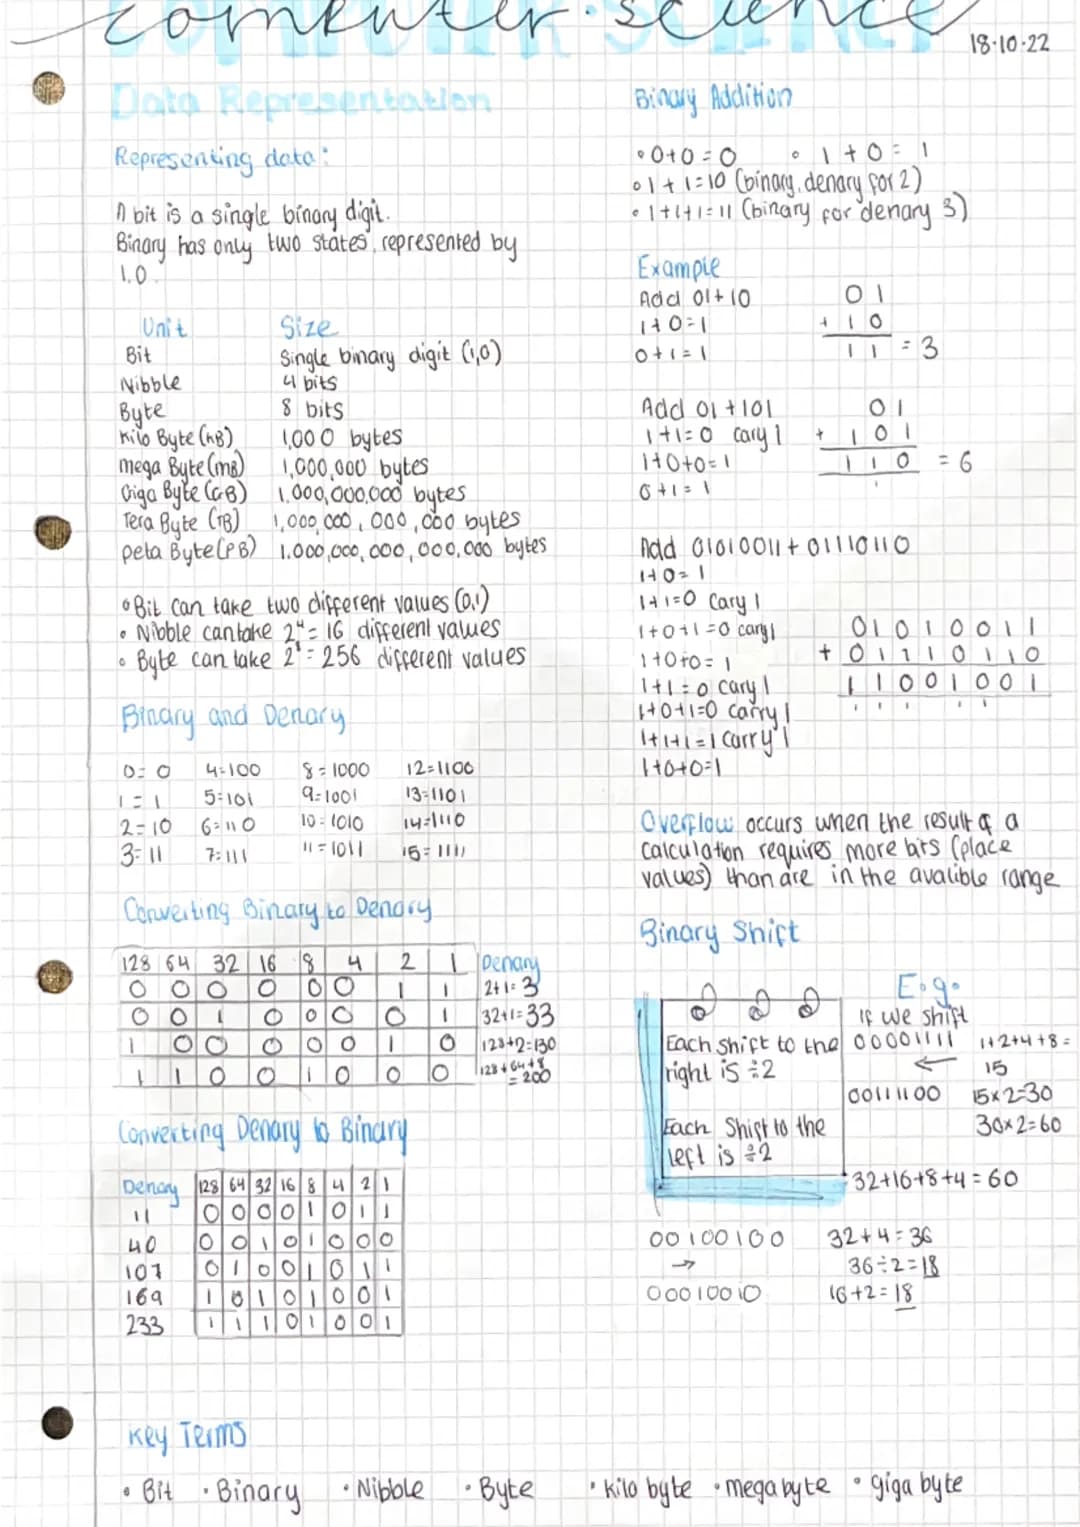 computer science
COMPUTER SCIENCE
18.10.22
Data Representation
Representing data:
A bit is a single binary digit.
Binary has only two states, represented by
1,0.
Unit Size
Bit Single binary digit (1,0)
Nibble 4 bits
Byte 8 bits
Kilo Byte (KB) 1,000 bytes
Mega Byte (MB) 1,000,000 bytes
Giga Byte (GB) 1,000,000,000 bytes
Tera Byte (TB) 1,000,000,000,000 bytes
peta Byte (PB) 1,000,000,000,000,000 bytes
• Bit can take two different values (0,1)
• Nibble can take 2⁴ = 16 different values
• Byte can take 2⁸ = 256 different values
Binary and Denary
0=0 4=100 8=1000 12=1100
1=1 5=101 9=1001 13=1101
2=10 6=110 10=1010 14=1110
3=11 7=111 11=1011 15=1111
Converting Binary to Denary
128 64 32 16 8 4 2 1 Denary
0 0 0 0 0 0 1 1 2+1=3
0 0 1 0 0 0 0 1 32+1=33
1 0 0 0 0 0 1 0 128+2=130
1 1 0 0 1 0 0 0 128+64+8
=200
Converting Denary to Binary
Denary 128 64 32 16 8 4 2 1
11 0 0 0 0 1 0 1 1
40 0 0 1 0 1 0 0 0
107 0 1 0 0 1 0 1 1
169 1 0 1 0 1 0 0 1
233 1 1 1 0 1 0 0 1
Key Terms
• Bit • Binary • Nibble • Byte • kilo byte • mega byte • giga byte
Binary Addition
• 0+0=0 • 1+0=1
• 1+1=10 (binary, denary for 2)
• 1+1+1=11 (binary for denary 3)
Example
Add 01+10
1+0=1
0+1=1
01
+ 10
11 = 3
Add 01+101
1+1=0 cary 1
1+0+0=1
0+1=1
01
+ 101
110 = 6
1
Add 01010011+01110110
1+0=1
1+1=0 Cary 1
1+0+1=0 cary 1
1+0+0=1
1+1=0 Cary 1
1+0+1=0 carry 1
1+1+1=1 Carry 1
1+0+0=1
01010011
+ 01110110
11001001
1 1 1 1 1
Overflow occurs when the result of a
calculation requires more bits (place
values) than are in the avalible range
Binary Shift
Each shift to the
right is ÷2
Each Shift to the
left is ÷2
E.g.
If we shift
00001111 1+2+4+8=
← 15
00111100 15×2=30
30×2=60
32+16+8+4=60
00100100 32+4=36
→ 36÷2=18
00010010 16+2=18